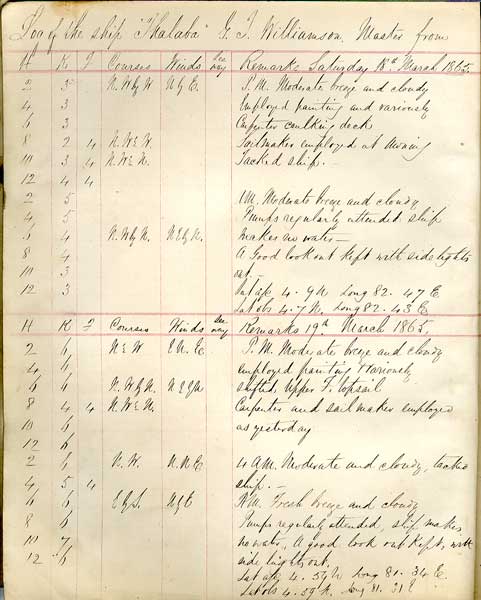 Log of the ship "Thalaba" G. T. Williamson. Master from
H K F Courses Winds Lee way Remarks Saturday 18th March 1865.
2 5 N.W by W N by E P.M. Moderate breeze and cloudy
4 3 Employed painting and variously
6 3 Carpenter caulking deck
8 2 4 N.W & W. Sailmaker employed at Awning
10 3 4 N.W & N. Tacked ship. —
12 4 4
2 5 AM. Moderate breeze and cloudy
4 5 Pumps regularly attended ship
6 4 N. W by N. N E by N. makes no water —
8 4 A Good look out kept with side lights
10 3 out —
12 3 Lat ap 4. 9 N Long 82. 47 E
Lat obs 4. 7 N. Long 82. 43 E
H K F Courses Winds Lee way Remarks 19th March 1865.
2 6 N & W E N. E P.M. Moderate breeze and cloudy
4 6 employed painting & variously
6 6 N. W by N. N E by N shifted Upper F. topsail
8 4 4 N. W & N. Carpenter and sail maker employed
10 6 as yesterday
12 6
2 6 N. W. N. N E 4 AM. Moderate and cloudy, tacked
4 5 4 ship. —
6 6 E by S. N by E AM. Fresh breeze and cloudy
8 6 Pumps regularly attended, ship makes
10 7 no water, A good look out kept, with
12 6 side lights out.
Lat ap 4. 54 N Long 81. 34 E.
Lat obs 4. 59 N. Long 81. 21 E